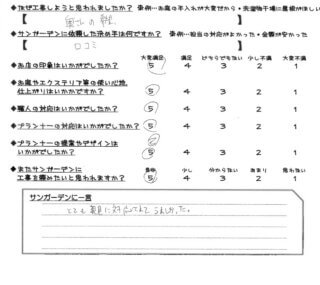 ◆なぜ工事しようと思われましたか？ ※例…お庭の手入れが大変だから・洗濯物干場に屋根がほしい
【 】
◆サンガーデンに依頼した決め手は何ですか？ ※例…担当の対応がよかった・金額が安かった
【 口コミ 】
大変満足 満足 どちらでもない 少し不満 大変不満
◆お店の印象はいかがでしたか？ 5 4 3 2 1
◆お庭やエクステリア等の使い心地、
仕上がりはいかがですか？ 5 4 3 2 1
◆職人の対応はいかがでしたか？ 5 4 3 2 1
◆プランナーの対応はいかがでしたか？ 5 4 3 2 1
◆プランナーの提案やデザインは
いかがでしたか？ 5 4 3 2 1
◆またサンガーデンに
工事を頼みたいと思われますか？ 5 4 3 2 1
少し 分からない あまり 思わない
サンガーデンに一言
とても親切に対応してくれて うれしかった。